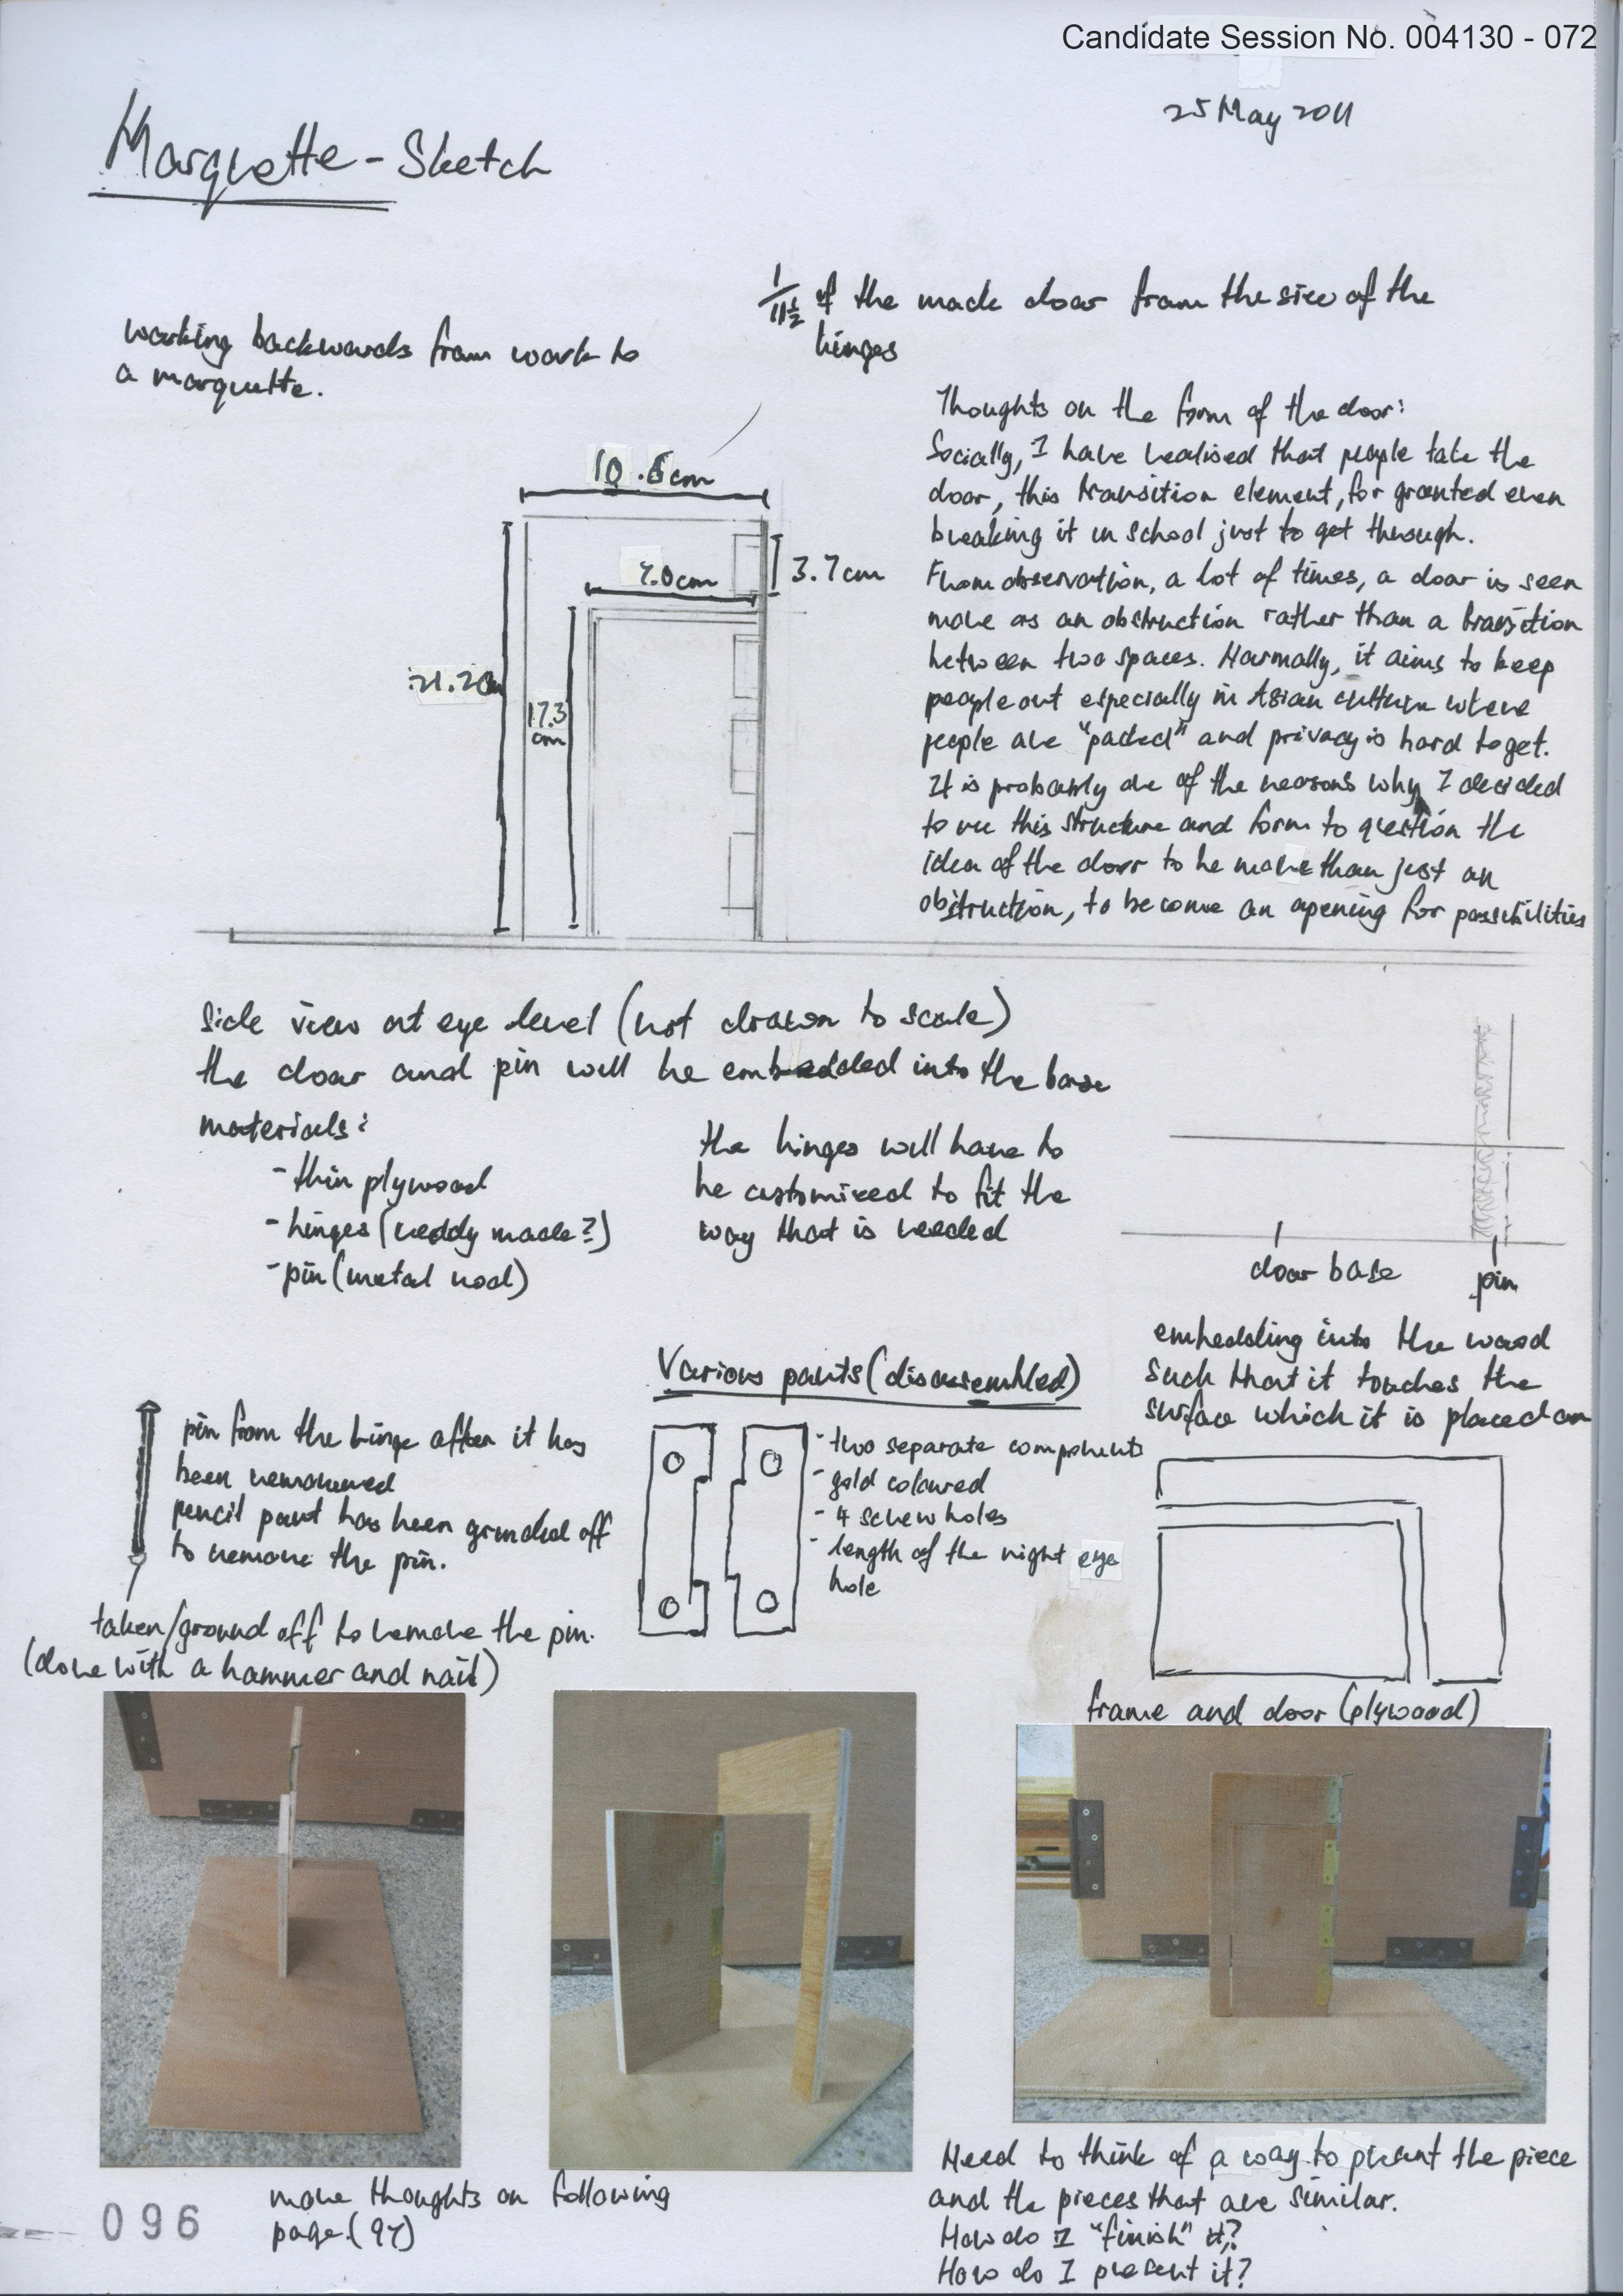 Candidate Session No. 004130 - 072
25 May 2011
Marquette - Sketch
1/11½ of the made door from the size of the
hinges
working backwards from work to
a marquette.
Thoughts on the form of the door:
Socially, I have realised that people take the
door, this transition element, for granted even
breaking it in school just to get through.
From observation, a lot of times, a door is seen
more as an obstruction rather than a transition
between two spaces. Normally, it aims to keep
people out especially in Asian culture where
people are "packed" and privacy is hard to get.
It is probably one of the reasons why I decided
to use this structure and form to question the
idea of the door to be more than just an
obstruction, to become an opening for possibilities
10.6cm
7.0cm
3.7cm
21.2cm
17.3
cm
side view at eye level (not drawn to scale)
the door and pin will be embedded into the base
materials:
- thin plywood
- hinges (reddy made?)
- pin (metal rod)
the hinges will have to
be customized to fit the
way that is needed
door base
pin
embedding into the wood
such that it touches the
surface which it is placed on
Various parts (disassembled)
pin from the hinge after it has
been removed
pencil part has been grinded off
to remove the pin.
taken/ground off to remove the pin.
(done with a hammer and nail)
- two separate components
- gold coloured
- 4 screw holes
- length of the right eye
hole
frame and door (plywood)
096
more thoughts on following
page (97)
Need to think of a way to present the piece
and the pieces that are similar.
How do I "finish" it?
How do I present it?